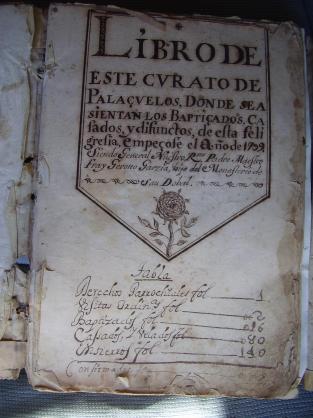 LIBRO DE
ESTE CVRATO DE
PALAÇVELOS, DONDE SE A
SIENTAN LOS BAPTIÇADOS, CA
sados, y difunctos, de esta feli
gresia, empeçose el Año de 1709
Siendo General Nuestro Rmo Padre Maestro
Fray Garcia, hijo del Monasterio de
tabla
Derechos Parrochiales fol 1
Visitas fol 2
Baptizados fol
Casados, y Velados fol 80
Entierros fol 140
Confirmados